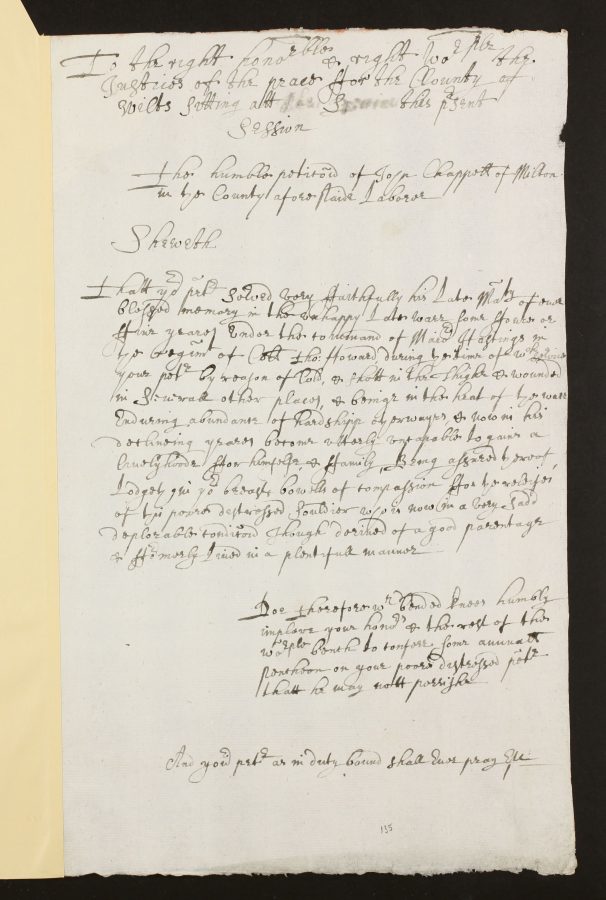 To the right hono:ble & right Wo:ple the
Justices of the peace ffor the County of
Wilts sitting att this p:sent
Session
The humble petitiō of Chappell of Milton
in ye County aforesaid Laborer
Sheweth
Thatt yor petr Served very ffaithfully his Late Maty of ever
blessed memory in the unhappy Late warr some ffoure or
ffive yeares under the command of Maior Hastings in
ye regimt of Coll Tho: Howard during ye time of wch
your petr by reason of Cold, & shott in the Thighe & wounded
in severall other places, & beinge in the heat of ye warr
Enduring abundance of hardshipp otherwayes & now in his
declineing yeares become utterly uncapable to gaine a
livelyhoode ffor himselfe & ffamily, Being assured thereof
Lodgeth in yor breasts bowells of compassion ffor ye releife
of poore distressed Souldier who is now in a very Sadd
deplorable conditiō Though derived of a good parentage
& fformerly Lived in a plentifull manner
Doe Therefore wth bended knees humbly
implore your honors & the rest of the
worple bench to conferr some annuall
Pencheon on your poore distressed petr
thatt he may nott perrishe
And your petr as in duty bound shall Ever pray Etc
135